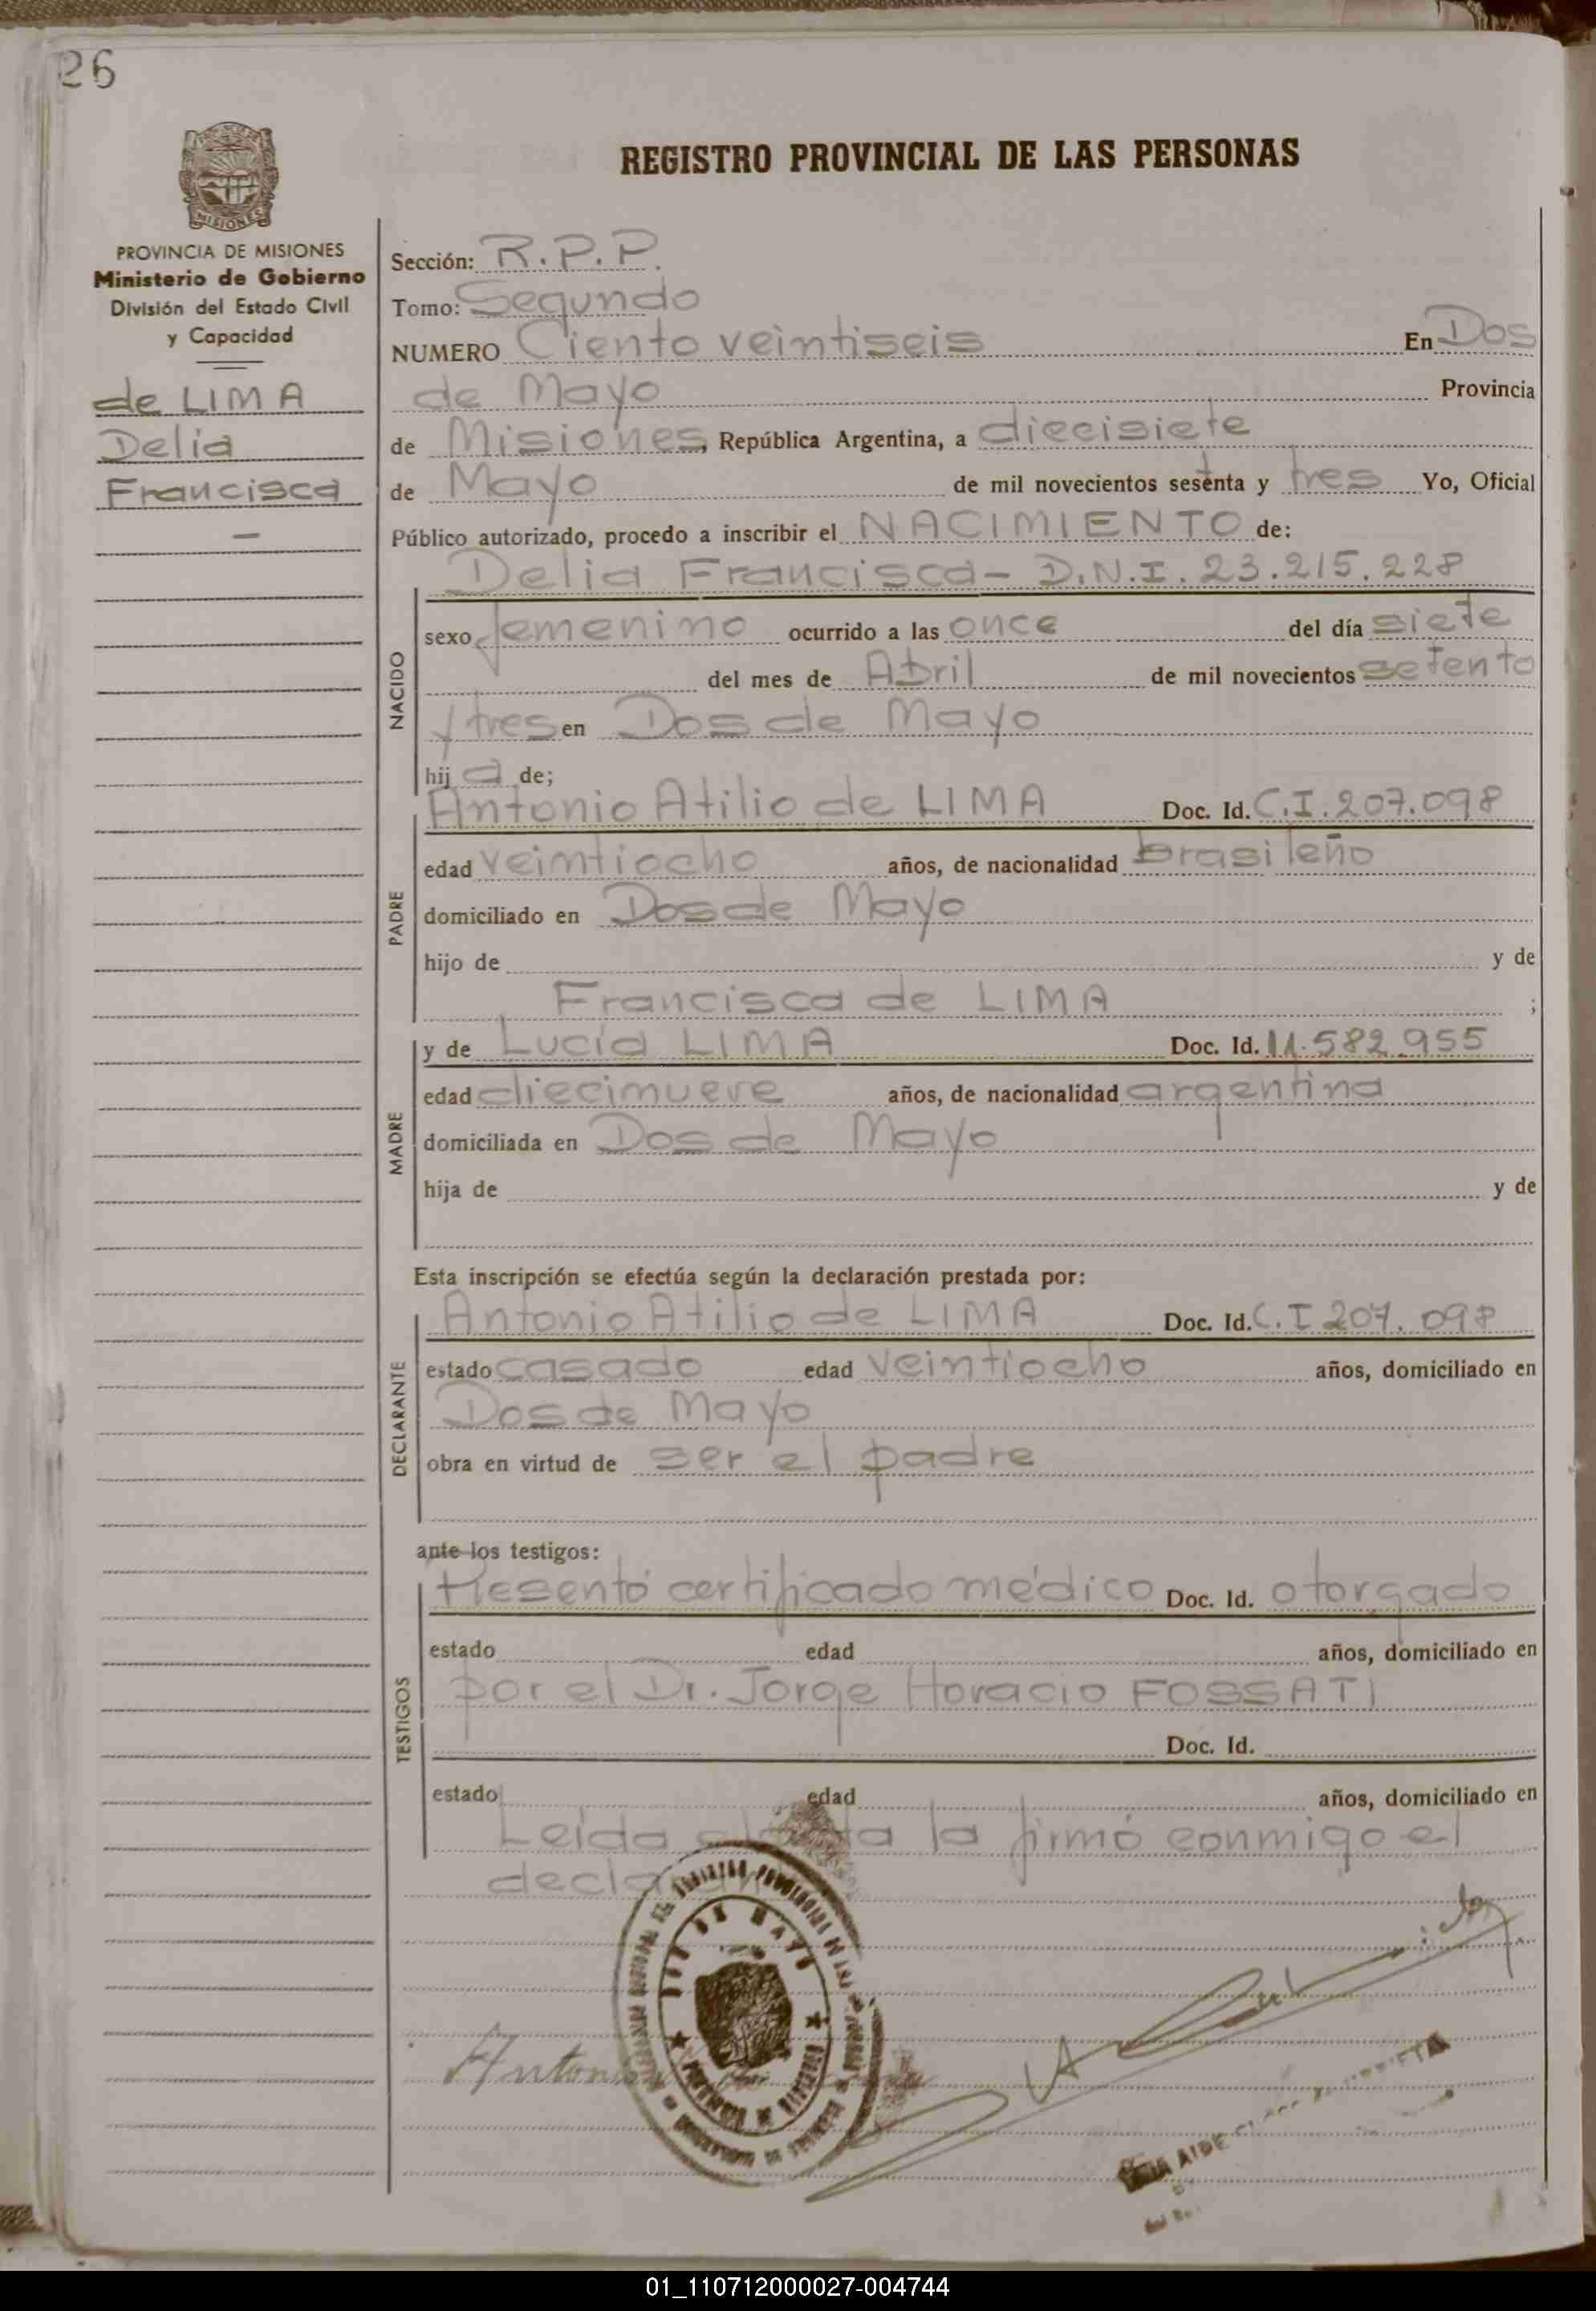 26
REGISTRO PROVINCIAL DE LAS PERSONAS
MISIONES
PROVINCIA DE MISIONES
Ministerio de Gobierno
División del Estado Civil
y Capacidad
de LIMA
Delia
Francisca
Sección: R.P.P.
Tomo: Segundo
NUMERO Ciento veintiseis En Dos
de Mayo Provincia
de Misiones, República Argentina, a diecisiete
de Mayo de mil novecientos sesenta y tres Yo, Oficial
Público autorizado, procedo a inscribir el NACIMIENTO de:
Delia Francisca - D.N.I. 23.215.228
NACIDO
sexo femenino ocurrido a las once del día siete
del mes de Abril de mil novecientos setenta
y tres en Dos de Mayo
hij a de;
Antonio Atilio de LIMA Doc. Id. C.I. 207.098
PADRE
edad veintiocho años, de nacionalidad brasileño
domiciliado en Dos de Mayo
hijo de y de
Francisca de LIMA ;
MADRE
y de Lucía LIMA Doc. Id. 11.582.955
edad diecinueve años, de nacionalidad argentina
domiciliada en Dos de Mayo
hija de y de
Esta inscripción se efectúa según la declaración prestada por:
DECLARANTE
Antonio Atilio de LIMA Doc. Id. C.I 207.098
estado casado edad veintiocho años, domiciliado en
Dos de Mayo
obra en virtud de ser el padre
ante los testigos:
TESTIGOS
Presentó certificado médico Doc. Id. otorgado
estado edad años, domiciliado en
por el Dr. Jorge Horacio FOSSATI
Doc. Id.
estado edad años, domiciliado en
Leída la firmó conmigo el
DOS DE MAYO
Antonio
01_110712000027-004744